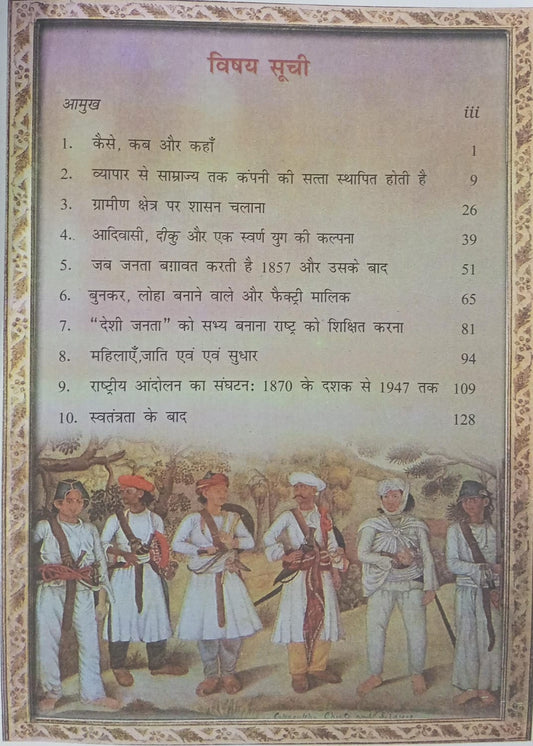 विषय सूची
आमुख iii
1. कैसे, कब और कहाँ 1
2. व्यापार से साम्राज्य तक कंपनी की सत्ता स्थापित होती है 9
3. ग्रामीण क्षेत्र पर शासन चलाना 26
4. आदिवासी, दीकु और एक स्वर्ण युग की कल्पना 39
5. जब जनता बग़ावत करती है 1857 और उसके बाद 51
6. बुनकर, लोहा बनाने वाले और फैक्ट्री मालिक 65
7. “देशी जनता” को सभ्य बनाना राष्ट्र को शिक्षित करना 81
8. महिलाएँ,जाति एवं एवं सुधार 94
9. राष्ट्रीय आंदोलन का संघटन: 1870 के दशक से 1947 तक 109
10. स्वतंत्रता के बाद 128